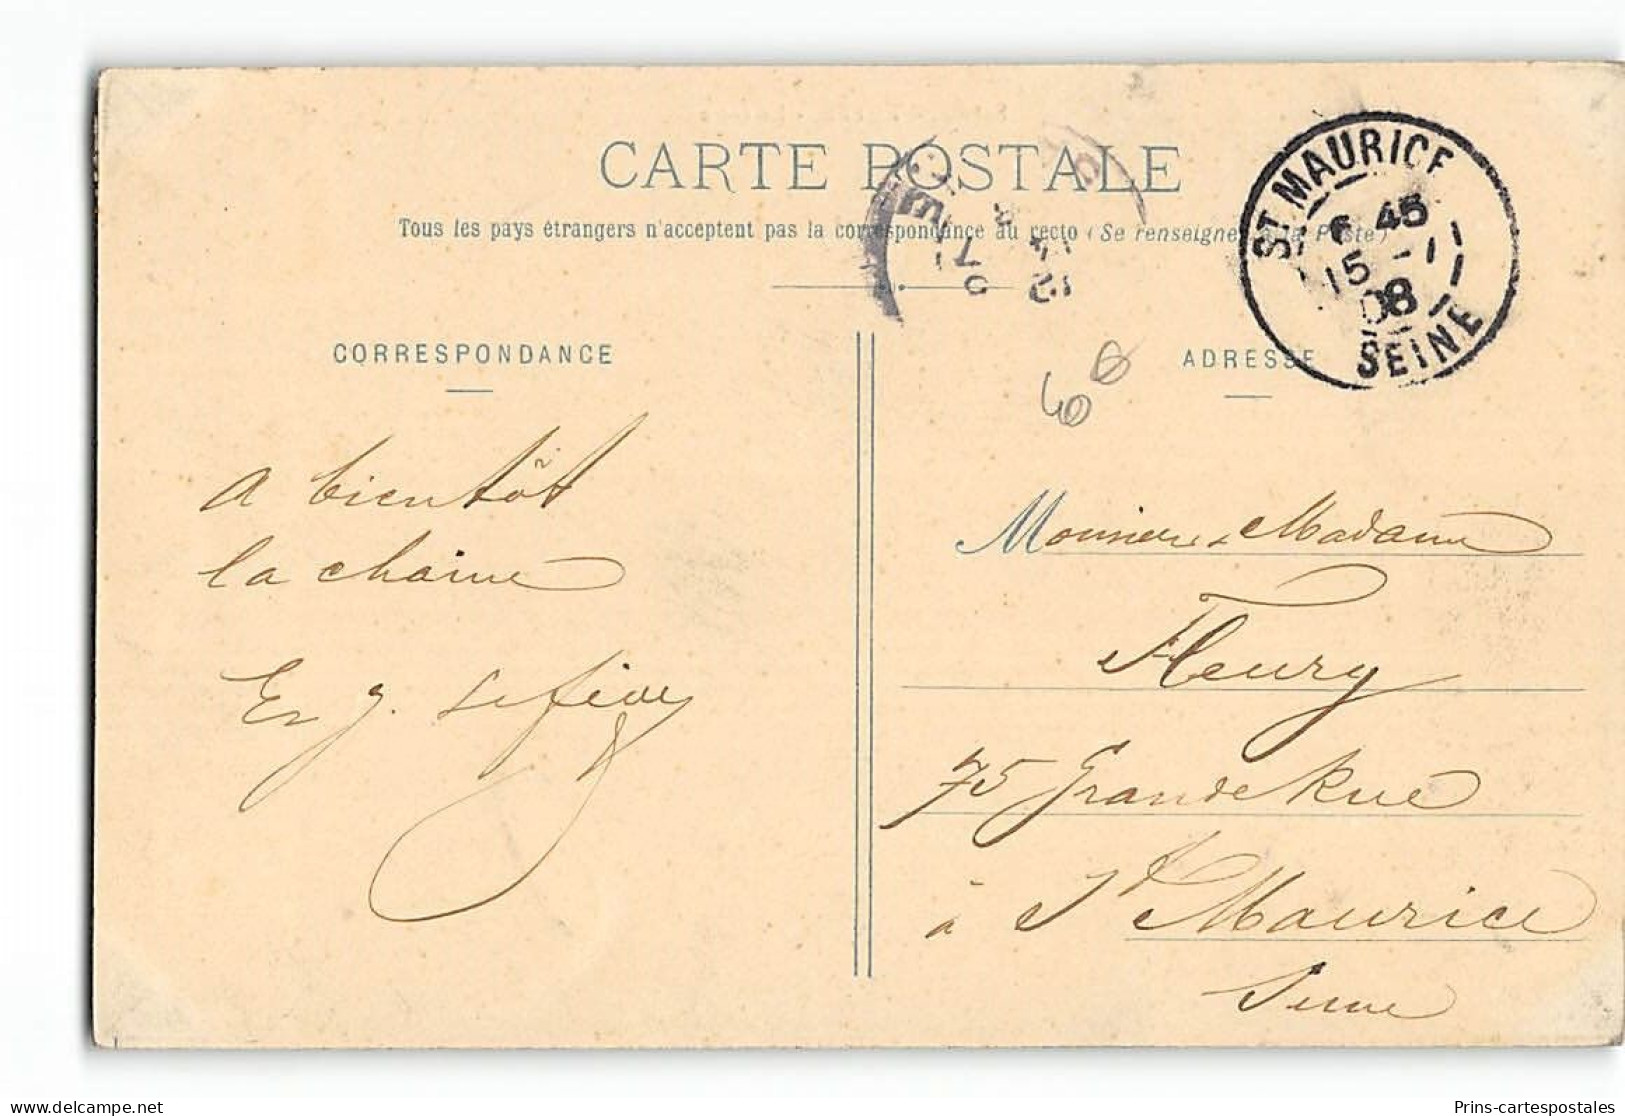 CARTE POSTALE
Tous les pays étrangers n'acceptent pas la correspondance au recto (Se renseigner à la Poste)
ST MAURICE
6 45
15 -1
08
SEINE
CORRESPONDANCE
ADRESSE
A bientôt
la chaine
E. J. Lefèvre
Monsieur & Madame
Fleury
75 Grande Rue
à St Maurice
Seine
Prins-cartespostales
delcampe.net